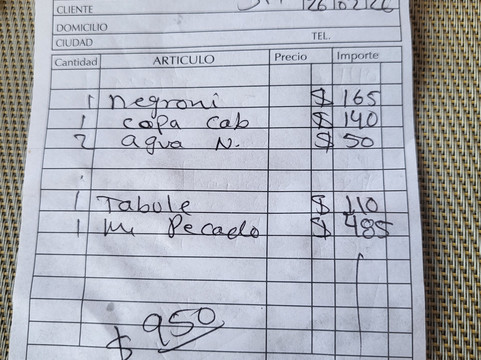 CLIENTE
DOMICILIO
CIUDAD TEL.
Cantidad ARTICULO Precio Importe
1 Negroni $ 165
1 copa cab $ 140
2 agua N. $ 50
1 Tabule $ 110
1 Mi Pecado $ 485
$ 950